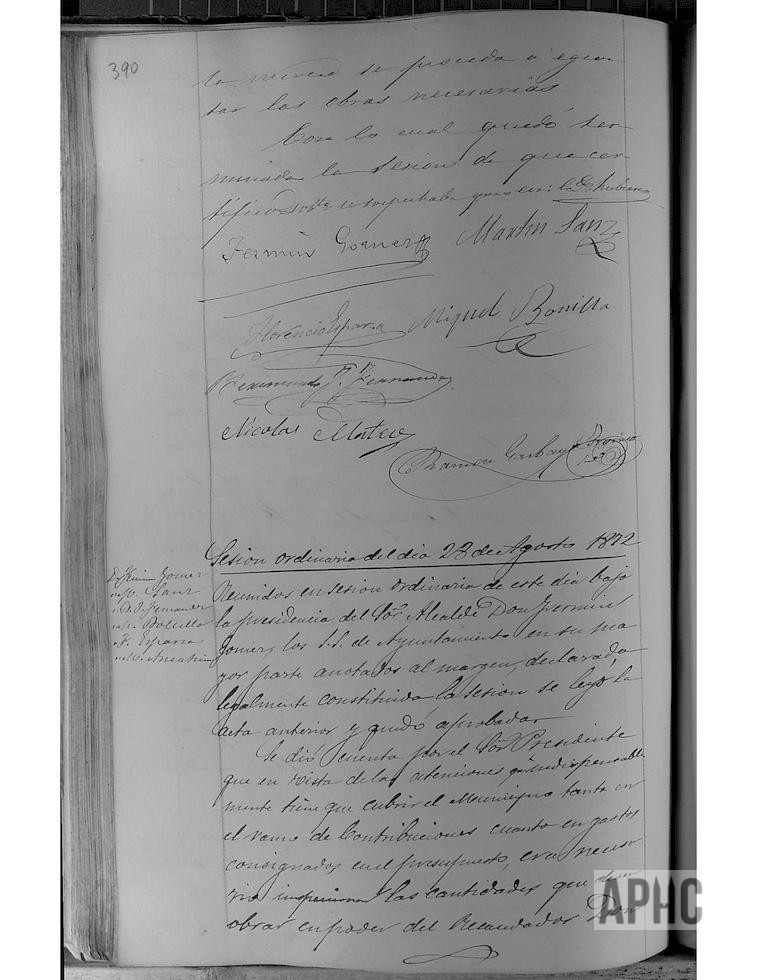 390
la merced se proceda á egecu
tar las obras necesarias
Con lo cual quedó ter-
minada la sesion de que cer-
tifico
Fermin Gomez Martin Sanz
Florencio Esparza Miguel Bonilla
Raimundo F. Fernandez
Nicolas Mateo
Ramon Garbayo
Sesion ordinaria del dia 23 de Agosto 1872
Dn Fermin Gomez
" M. Sanz
" F. Fernandez
" M. Bonilla
" F. Esparza
" M.
Reunidos en sesion ordinaria de este dia bajo
la presidencia del Sor. Alcalde Don Fermin
Gomez, los S.S. de Ayuntamiento en su ma
yor parte anotados al margen, declarada
legalmente constituida la sesion se leyó la
acta anterior y quedó aprobada
Se dió cuenta por el Sor. Presidente
que en vista de las atenciones que indispensable
mente tiene que cubrir el Municipio tanto en
el ramo de Contribuciones cuanto en gastos
consignados en el presupuesto, era necesa
rio las cantidades que deben
obrar en poder del Recaudador Don
APHC